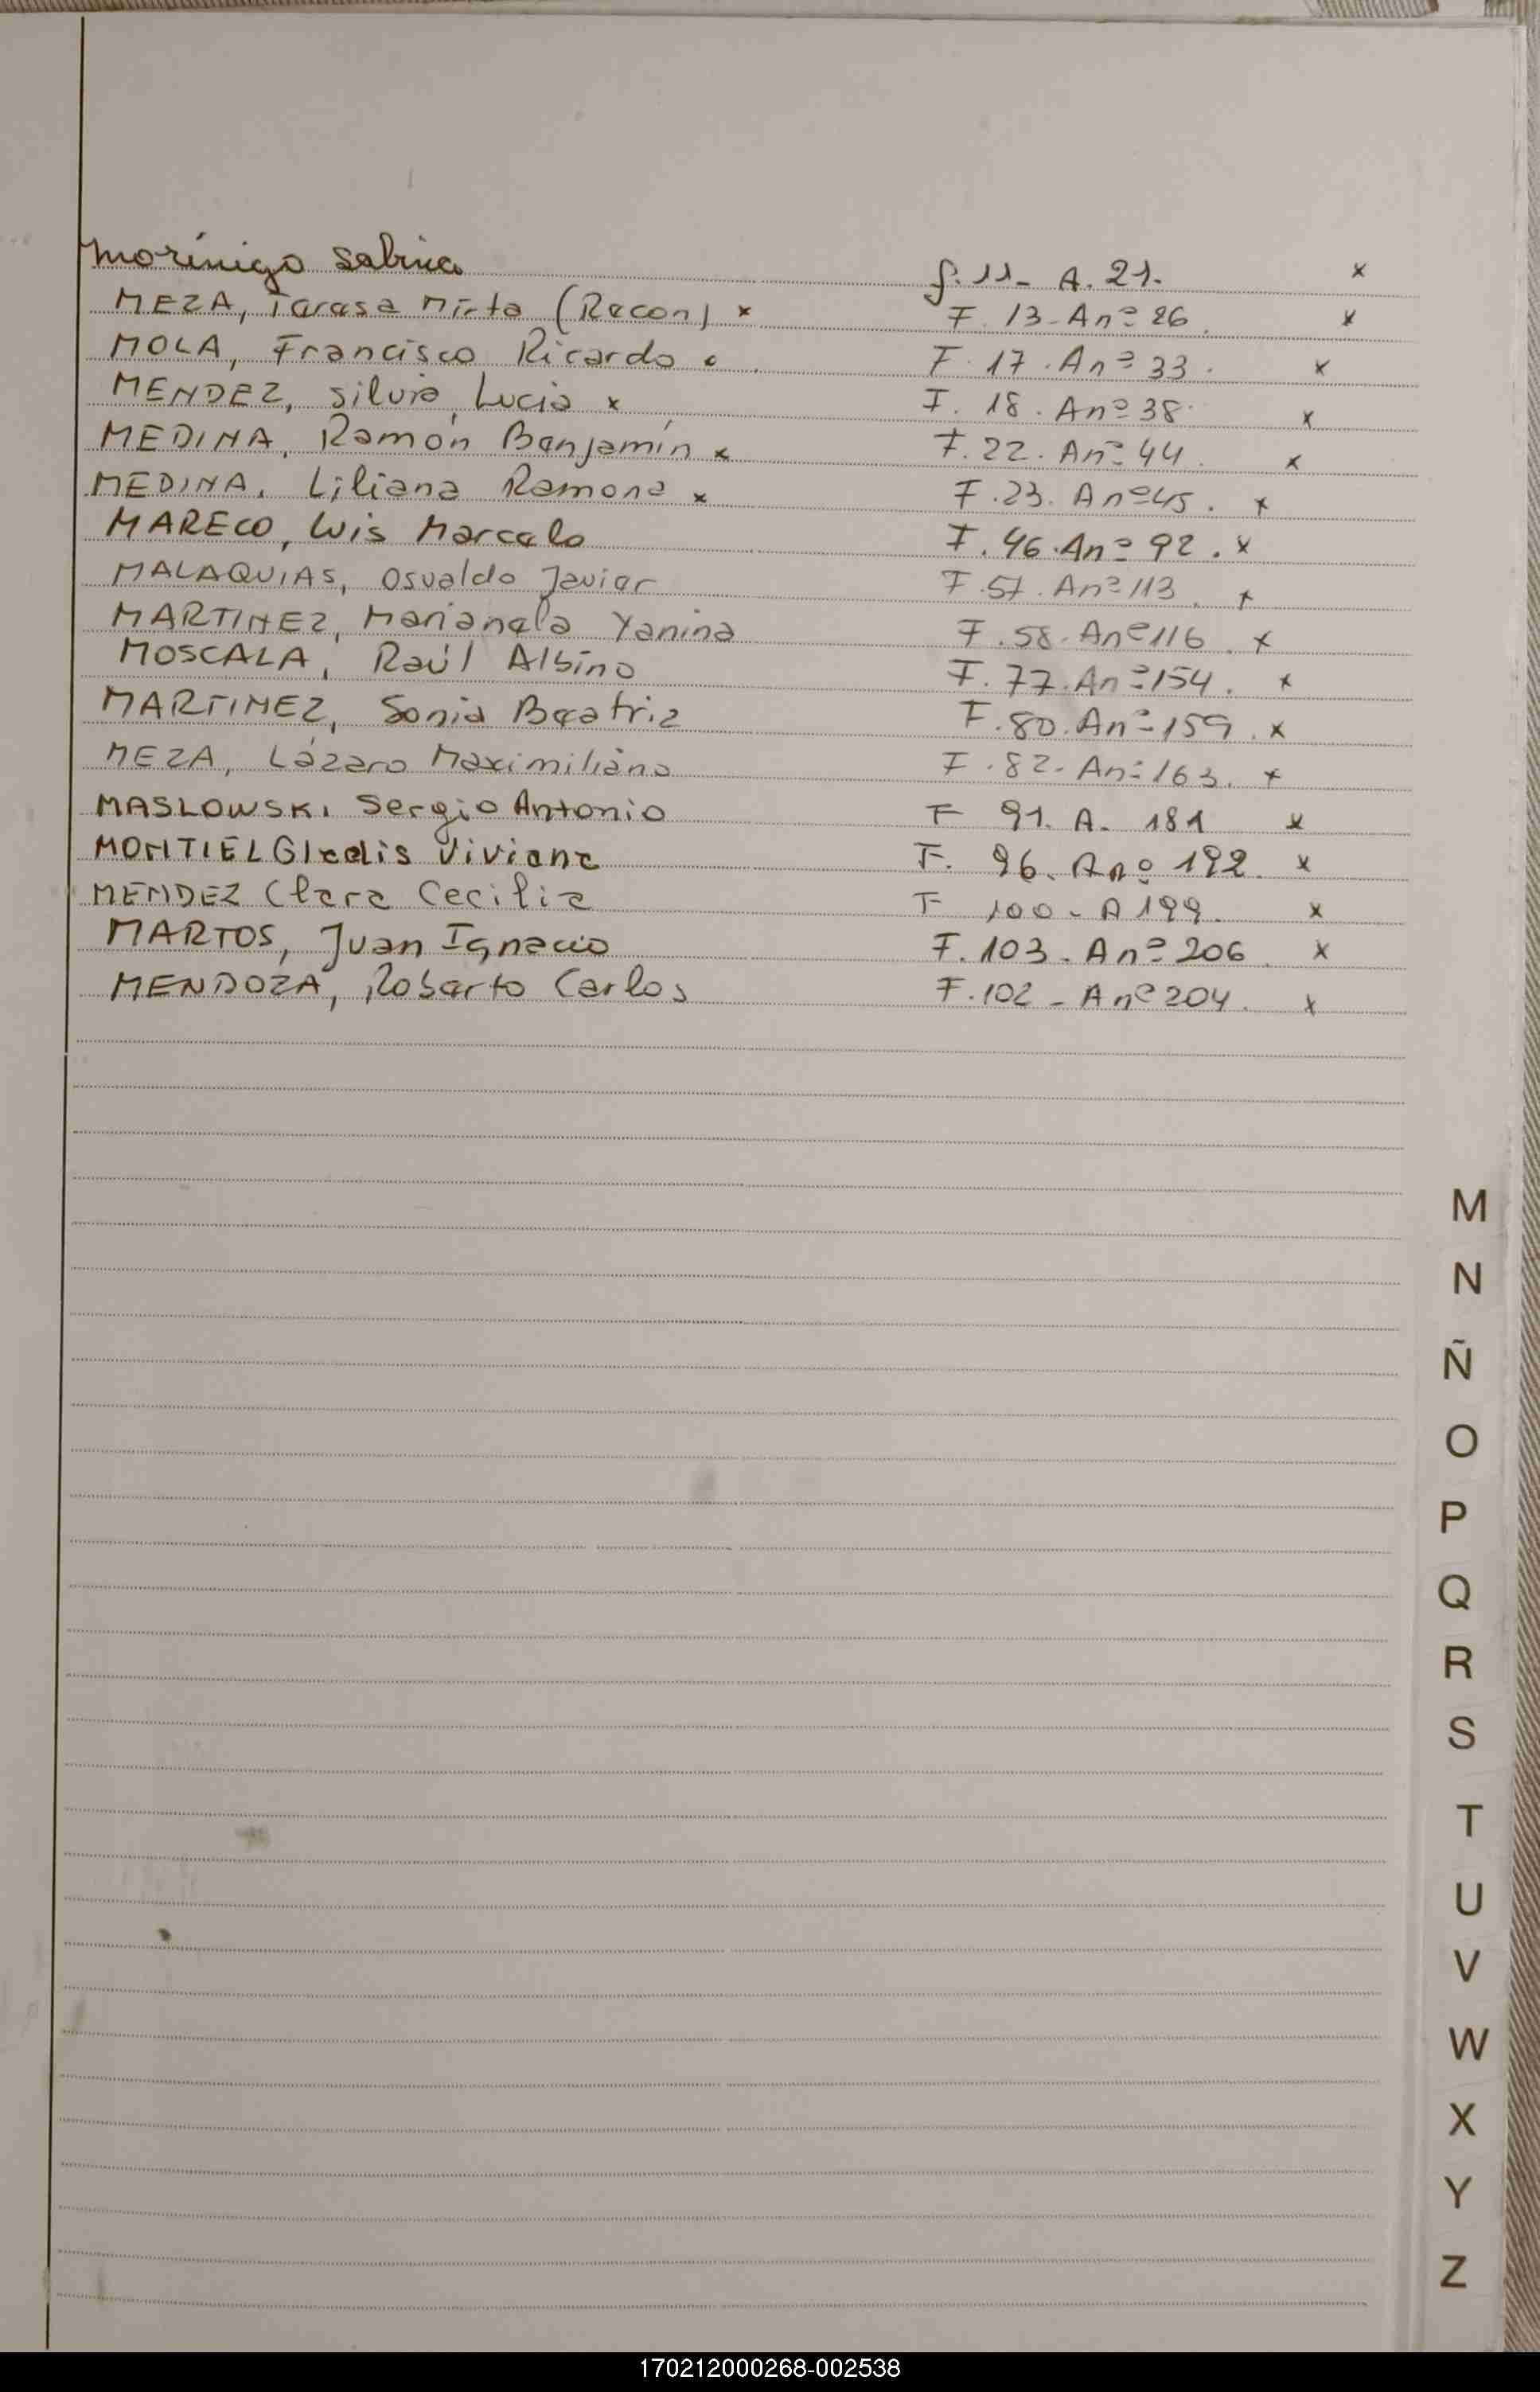 Morínigo Sabina f. 11- A. 21. x
MEZA, Teresa Mirta (Recon) x F. 13-An° 26. x
MOLA, Francisco Ricardo . F. 17. An° 33. x
MENDEZ, Silvia Lucia x F. 18. An° 38. x
MEDINA, Ramón Benjamín x F. 22. An° 44. x
MEDINA, Liliana Ramona x F. 23. An° 45. x
MARECO, Luis Marcelo F. 46. An° 92. x
MALAQUIAS, Osvaldo Javier F. 57. An° 113. x
MARTINEZ, Marianela Yanina F. 58. An° 116. x
MOSCALA, Raúl Albino F. 77. An° 154. x
MARTINEZ, Sonia Beatriz F. 80. An° 159. x
MEZA, Lázaro Maximiliano F. 82- An° 163. x
MASLOWSKI Sergio Antonio F 91. A. 181 x
MONTIEL Gladis Viviana F. 96. An° 192. x
MENDEZ Clara Cecilia F 100- A 199. x
MARTOS, Juan Ignacio F. 103. An° 206. x
MENDOZA, Roberto Carlos F. 102 - An° 204. x
M
N
Ñ
O
P
Q
R
S
T
U
V
W
X
Y
Z
170212000268-002538